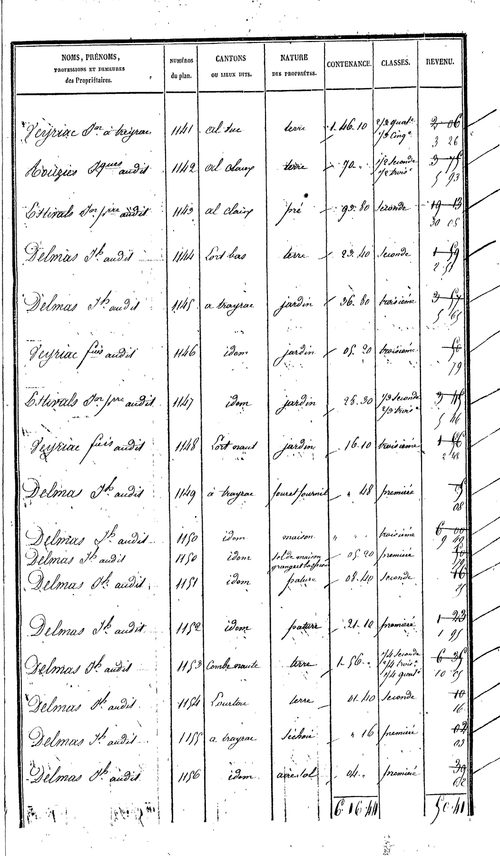 NOMS, PRÉNOMS, PROFESSIONS ET DEMEURES des Propriétaires. NUMÉROS du plan. CANTONS OU LIEUX DITS. NATURE DES PROPRIÉTÉS. CONTENANCE. CLASSES. REVENU.
Veyriac à treyrac 1141 al suc terre 1. 46. 10 1/2 quat. 1/2 cinq. 2 06
3 26
audit 1142 al claux terre 70 1/2 seconde 1/2 trois. 3 75
5 93
Estivals audit 1143 al claux pré 93. 80 seconde 19 13
30 05
Delmas Jh audit 1144 Lort bas terre 23. 40 seconde 1 59
2 51
Delmas Jh audit 1145 a trayrac jardin 36. 80 troisième 3 57
5 65
Veyriac fuis audit 1146 idem jardin 05. 20 troisième 50
79
Estivals audit 1147 idem jardin 25. 30 1/2 seconde 1/2 trois. 3 45
5 46
Veyriac fuis audit 1148 Lort haut jardin 16. 10 troisième 1 56
2 48
Delmas Jh audit 1149 à trayrac four et fournil " 48 première 5
08
Delmas Jh audit 1150 idem maison " troisième 6 00
Delmas Jh audit 1150 idem sol de maison 05. 20 première 50
Delmas Jh audit 1151 idem pature 08. 40 seconde 16
Delmas Jh audit 1152 idem pature 21. 10 première 1 23
1 95
Delmas Jh audit 1153 Combe haute terre 1. 56 1/4 seconde 1/4 trois. 2/4 quat. 6 35
10 05
Delmas Jh audit 1154 Lourtou terre 01. 40 seconde 10
16
Delmas Jh audit 1155 a trayrac séchoir " 16 première 02
03
Delmas Jh audit 1156 idem aire sol 04 première 39
62
6. 16. 44 50. 41